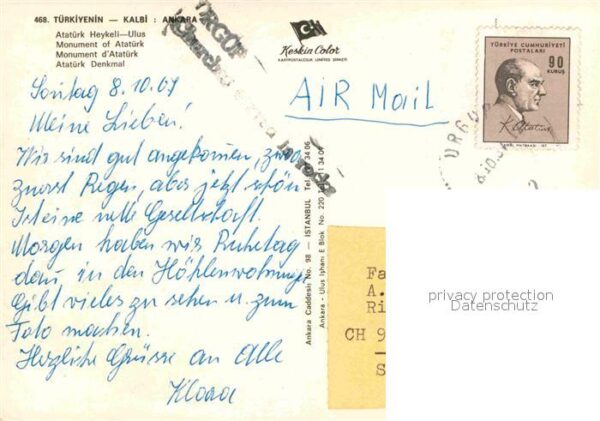 468. TÜRKİYENİN — KALBİ : ANKARA
Atatürk Heykeli—Ulus
Monument of Atatürk
Monument d'Atatürk
Atatürk Denkmal
Keskin Color
KARTPOSTALCILIK LIMITED ŞİRKETİ
TÜRKİYE CUMHURİYETİ
POSTALARI
90
KURUŞ
K. Atatürk
ÜRGÜP
AIR MAIL
Sontag 8.10.67
Meine Lieben!
Wir sind gut angekommen,
zuerst Regen, aber jetzt schön
Ist eine nette Gesellschaft.
Morgen haben wir Ruhetag
dan in den Höhlenwohnungen
Gibt vieles zu sehen u. zum
Foto machen.
Herzliche Grüsse an Alle
Klara
Ankara Caddesi No. 98 — ISTANBUL Tel.
Ankara - Ulus İşhanı E Blok No. 220
Fa
A.
Ri
CH 9
S
privacy protection
Datenschutz